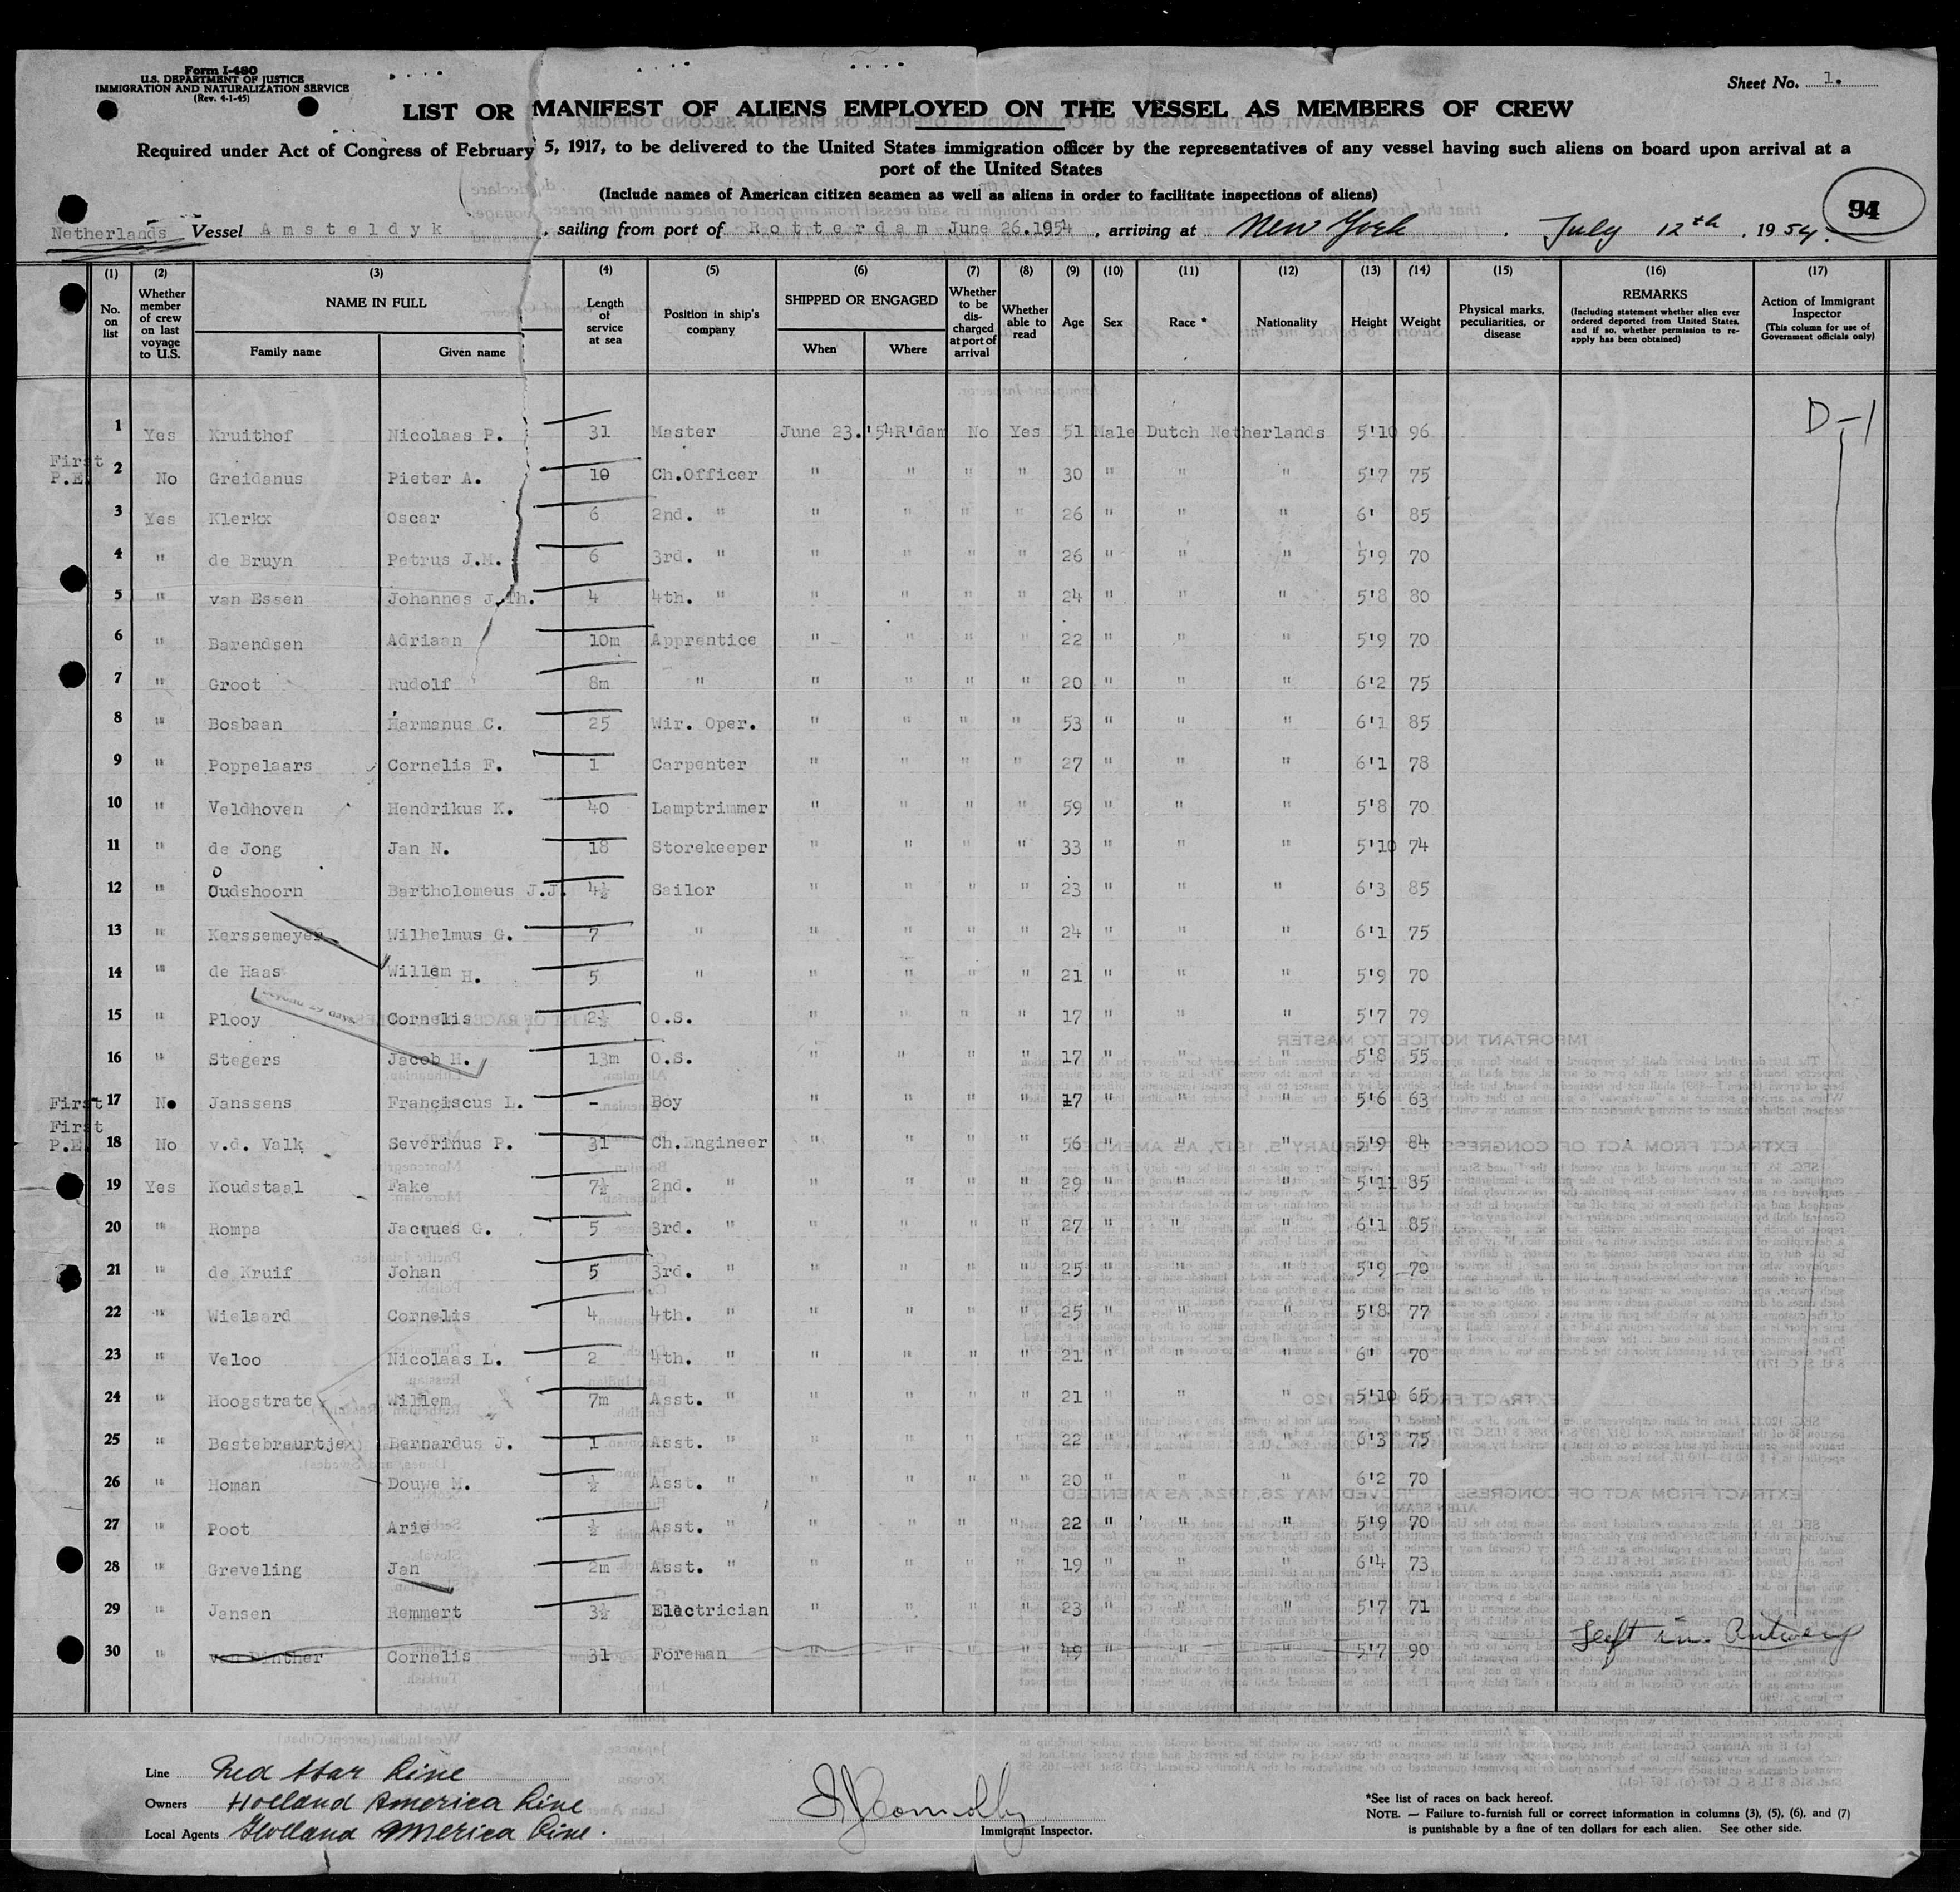 Form I-480
U.S. DEPARTMENT OF JUSTICE
IMMIGRATION AND NATURALIZATION SERVICE
(Rev. 4-1-45)
Sheet No. 1.
LIST OR MANIFEST OF ALIENS EMPLOYED ON THE VESSEL AS MEMBERS OF CREW
Required under Act of Congress of February 5, 1917, to be delivered to the United States immigration officer by the representatives of any vessel having such aliens on board upon arrival at a
port of the United States
(Include names of American citizen seamen as well as aliens in order to facilitate inspections of aliens)
94
Netherlands Vessel Amsteldyk, sailing from port of Rotterdam June 26.1954, arriving at New York. July 12th, 1954.
(1) (2) (3) (4) (5) (6) (7) (8) (9) (10) (11) (12) (13) (14) (15) (16) (17)
No. on list
Whether member of crew on last voyage to U.S.
NAME IN FULL
Family name Given name
Length of service at sea
Position in ship's company
SHIPPED OR ENGAGED
When Where
Whether to be discharged at port of arrival
Whether able to read
Age Sex Race * Nationality Height Weight
Physical marks, peculiarities, or disease
REMARKS
(Including statement whether alien ever ordered deported from United States, and if so, whether permission to reapply has been obtained)
Action of Immigrant Inspector
(This column for use of Government officials only)
D-1
1 Yes Kruithof Nicolaas P. 31 Master June 23.'54 R'dam No Yes 51 Male Dutch Netherlands 5'10 96
First P.E. 2 No Greidanus Pieter A. 10 Ch.Officer " " " " 30 " " " 5'7 75
3 Yes Klerkx Oscar 6 2nd. " " " " " 26 " " " 6' 85
4 " de Bruyn Petrus J.M. 6 3rd. " " " " " 26 " " " 5'9 70
5 " van Essen Johannes J.Th. 4 4th. " " " " " 24 " " " 5'8 80
6 " Barendsen Adriaan 10m Apprentice " " " " 22 " " " 5'9 70
7 " Groot Rudolf 8m " " " " " 20 " " " 6'2 75
8 " Bosbaan Harmanus C. 25 Wir. Oper. " " " " 53 " " " 6'1 85
9 " Poppelaars Cornelis F. 1 Carpenter " " " " 27 " " " 6'1 78
10 " Veldhoven Hendrikus K. 40 Lamptrimmer " " " " 59 " " " 5'8 70
11 " de Jong Jan N. 18 Storekeeper " " " " 33 " " " 5'10 74
12 " Oudshoorn Bartholomeus J.J. 4½ Sailor " " " " 23 " " " 6'3 85
13 " Kerssemeyer Wilhelmus G. 7 " " " " " 24 " " " 6'1 75
14 " de Haas Willem H. 5 " " " " " 21 " " " 5'9 70
15 " Plooy Cornelis 2½ O.S. " " " " 17 " " " 5'7 79
16 " Stegers Jacob H. 13m O.S. " " " " 17 " " " 5'8 55
First 17 No Janssens Franciscus L. - Boy " " " " 17 " " " 5'6 63
First P.E. 18 No v.d. Valk Severinus P. 31 Ch.Engineer " " " " 56 " " " 5'9 84
19 Yes Koudstaal Fake 7½ 2nd. " " " " " 29 " " " 5'11 85
20 " Rompa Jacques G. 5 3rd. " " " " " 27 " " " 6'1 85
21 " de Kruif Johan 5 3rd. " " " " " 25 " " " 5'9 70
22 " Wielaard Cornelis 4 4th. " " " " " 25 " " " 5'8 77
23 " Veloo Nicolaas L. 2 4th. " " " " " 21 " " " 6' 70
24 " Hoogstrate Willem 7m Asst. " " " " " 21 " " " 5'10 65
25 " Bestebreurtje Bernardus J. 1 Asst. " " " " " 22 " " " 6'3 75
26 " Homan Douwe M. ½ Asst. " " " " " 20 " " " 6'2 70
27 " Poot Arie ½ Asst. " " " " " 22 " " " 5'9 70
28 " Greveling Jan 2m Asst. " " " " " 19 " " " 6'4 73
29 " Jansen Remmert 3½ Electrician " " " " 23 " " " 5'7 71
30 " van Dinther Cornelis 31 Foreman " " " " 49 " " " 5'7 90 Left in Antwerp
Line Red Star Line
Owners Holland America Line
Local Agents Holland America Line.
Immigrant Inspector.
*See list of races on back hereof.
NOTE. — Failure to furnish full or correct information in columns (3), (5), (6), and (7)
is punishable by a fine of ten dollars for each alien. See other side.